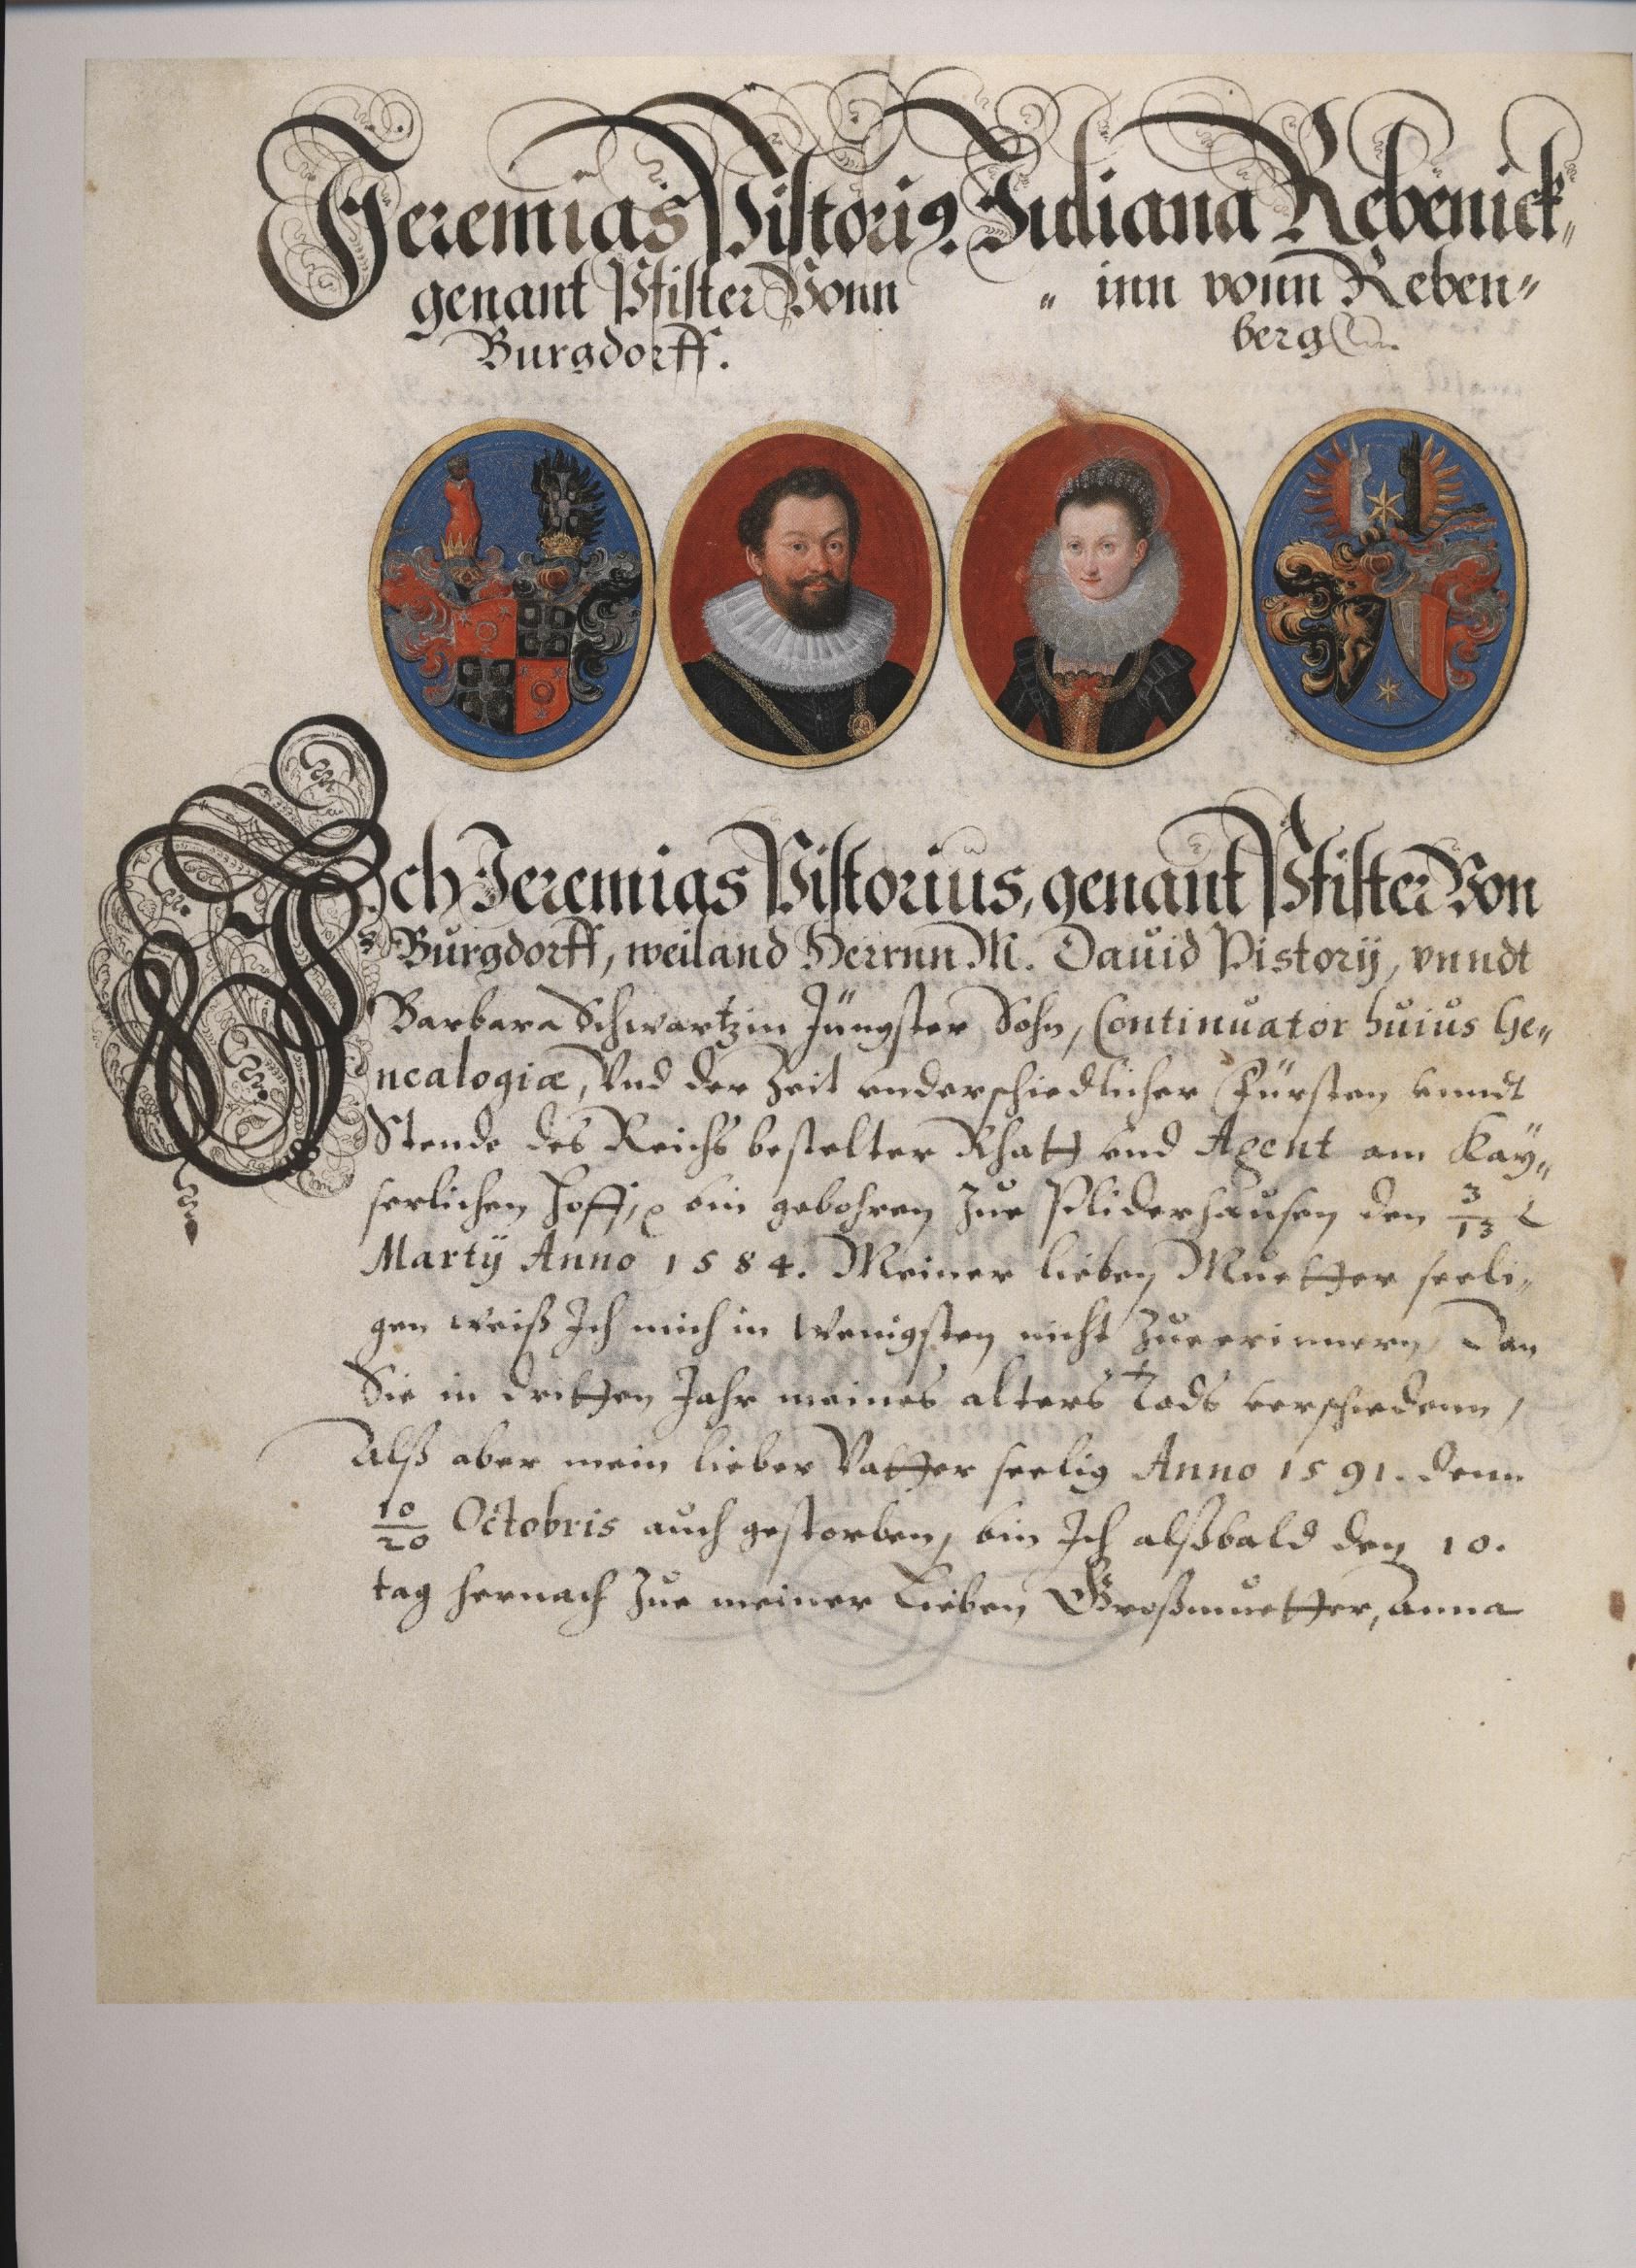 Jeremias Pistori9. Juliana Rebenick„
genant Pfister Vonn „ inn vonn Reben„
Burgdorff. berg
Ich Jeremias Pistorius, genant Pfister Von
Burgdorff, weiland Herrnn M. Dauid Pistorij, vnndt
Barbara Schwartzin Jüngster Sohn, Continuator huius Ge„
nealogiæ, Vnd der Zeit vnderschiedlicher Fürsten vnndt
Stende des Reichs bestelter Rhatt vnd Agent am Kaÿ„
serlichen Hoff, bin gebohren zue Pliderhausen den 3/13
Martÿ Anno 1584. Meiner lieben Muetter seeli„
gen weiß Ich mich in Wenigsten nicht Zueerinnern, Dan
Sie in dritten Jahr meines alters Tods verschiedenn,
Alß aber mein lieber Vatter seelig Anno 1591. denn
10/20 Octobris auch gestorben, bin Ich alßbald den 10.
tag hernach Zue meiner Lieben Großmuetter, Anna